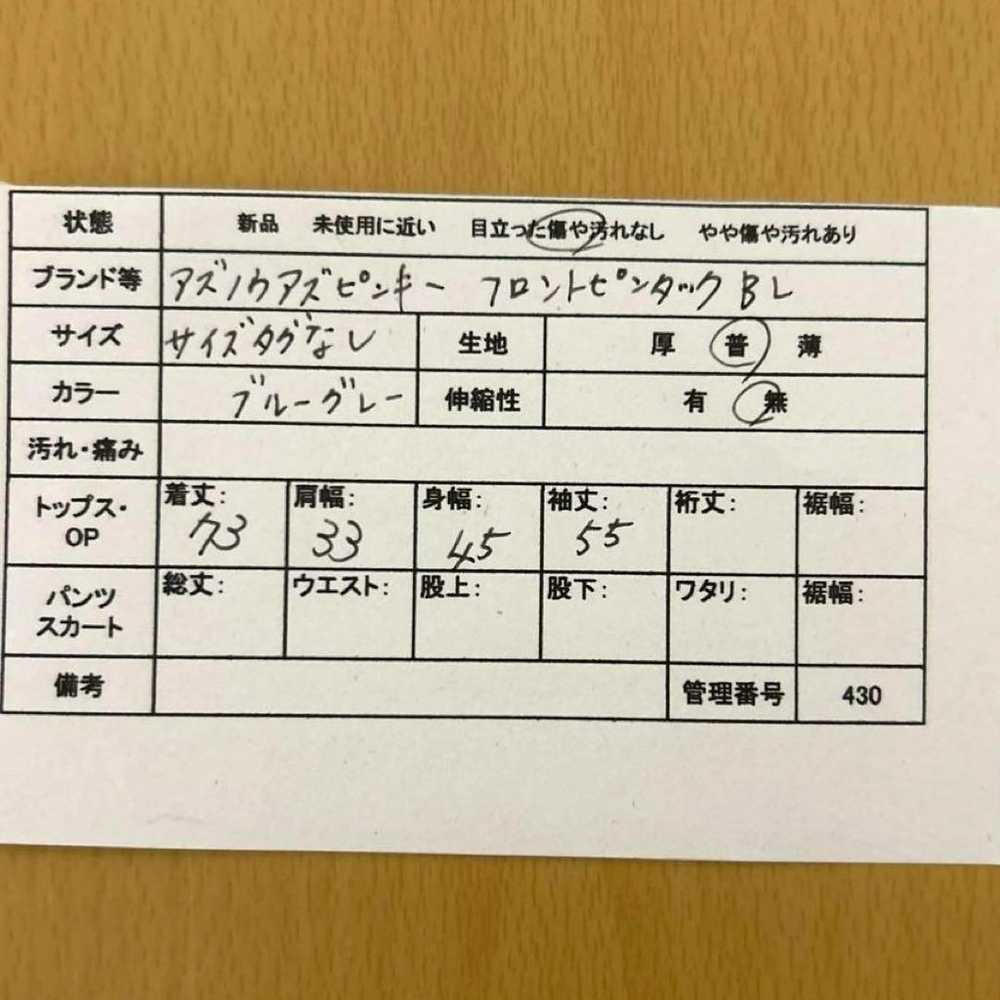 状態 新品 未使用に近い 目立った傷や汚れなし やや傷や汚れあり
ブランド等 アズノウアズピンキー フロントピンタックBL
サイズ サイズタグなし 生地 厚 普 薄
カラー ブルーグレー 伸縮性 有 無
汚れ・痛み
トップス・OP 着丈: 73 肩幅: 33 身幅: 45 袖丈: 55 裄丈: 裾幅:
パンツ スカート 総丈: ウエスト: 股上: 股下: ワタリ: 裾幅:
備考 管理番号 430